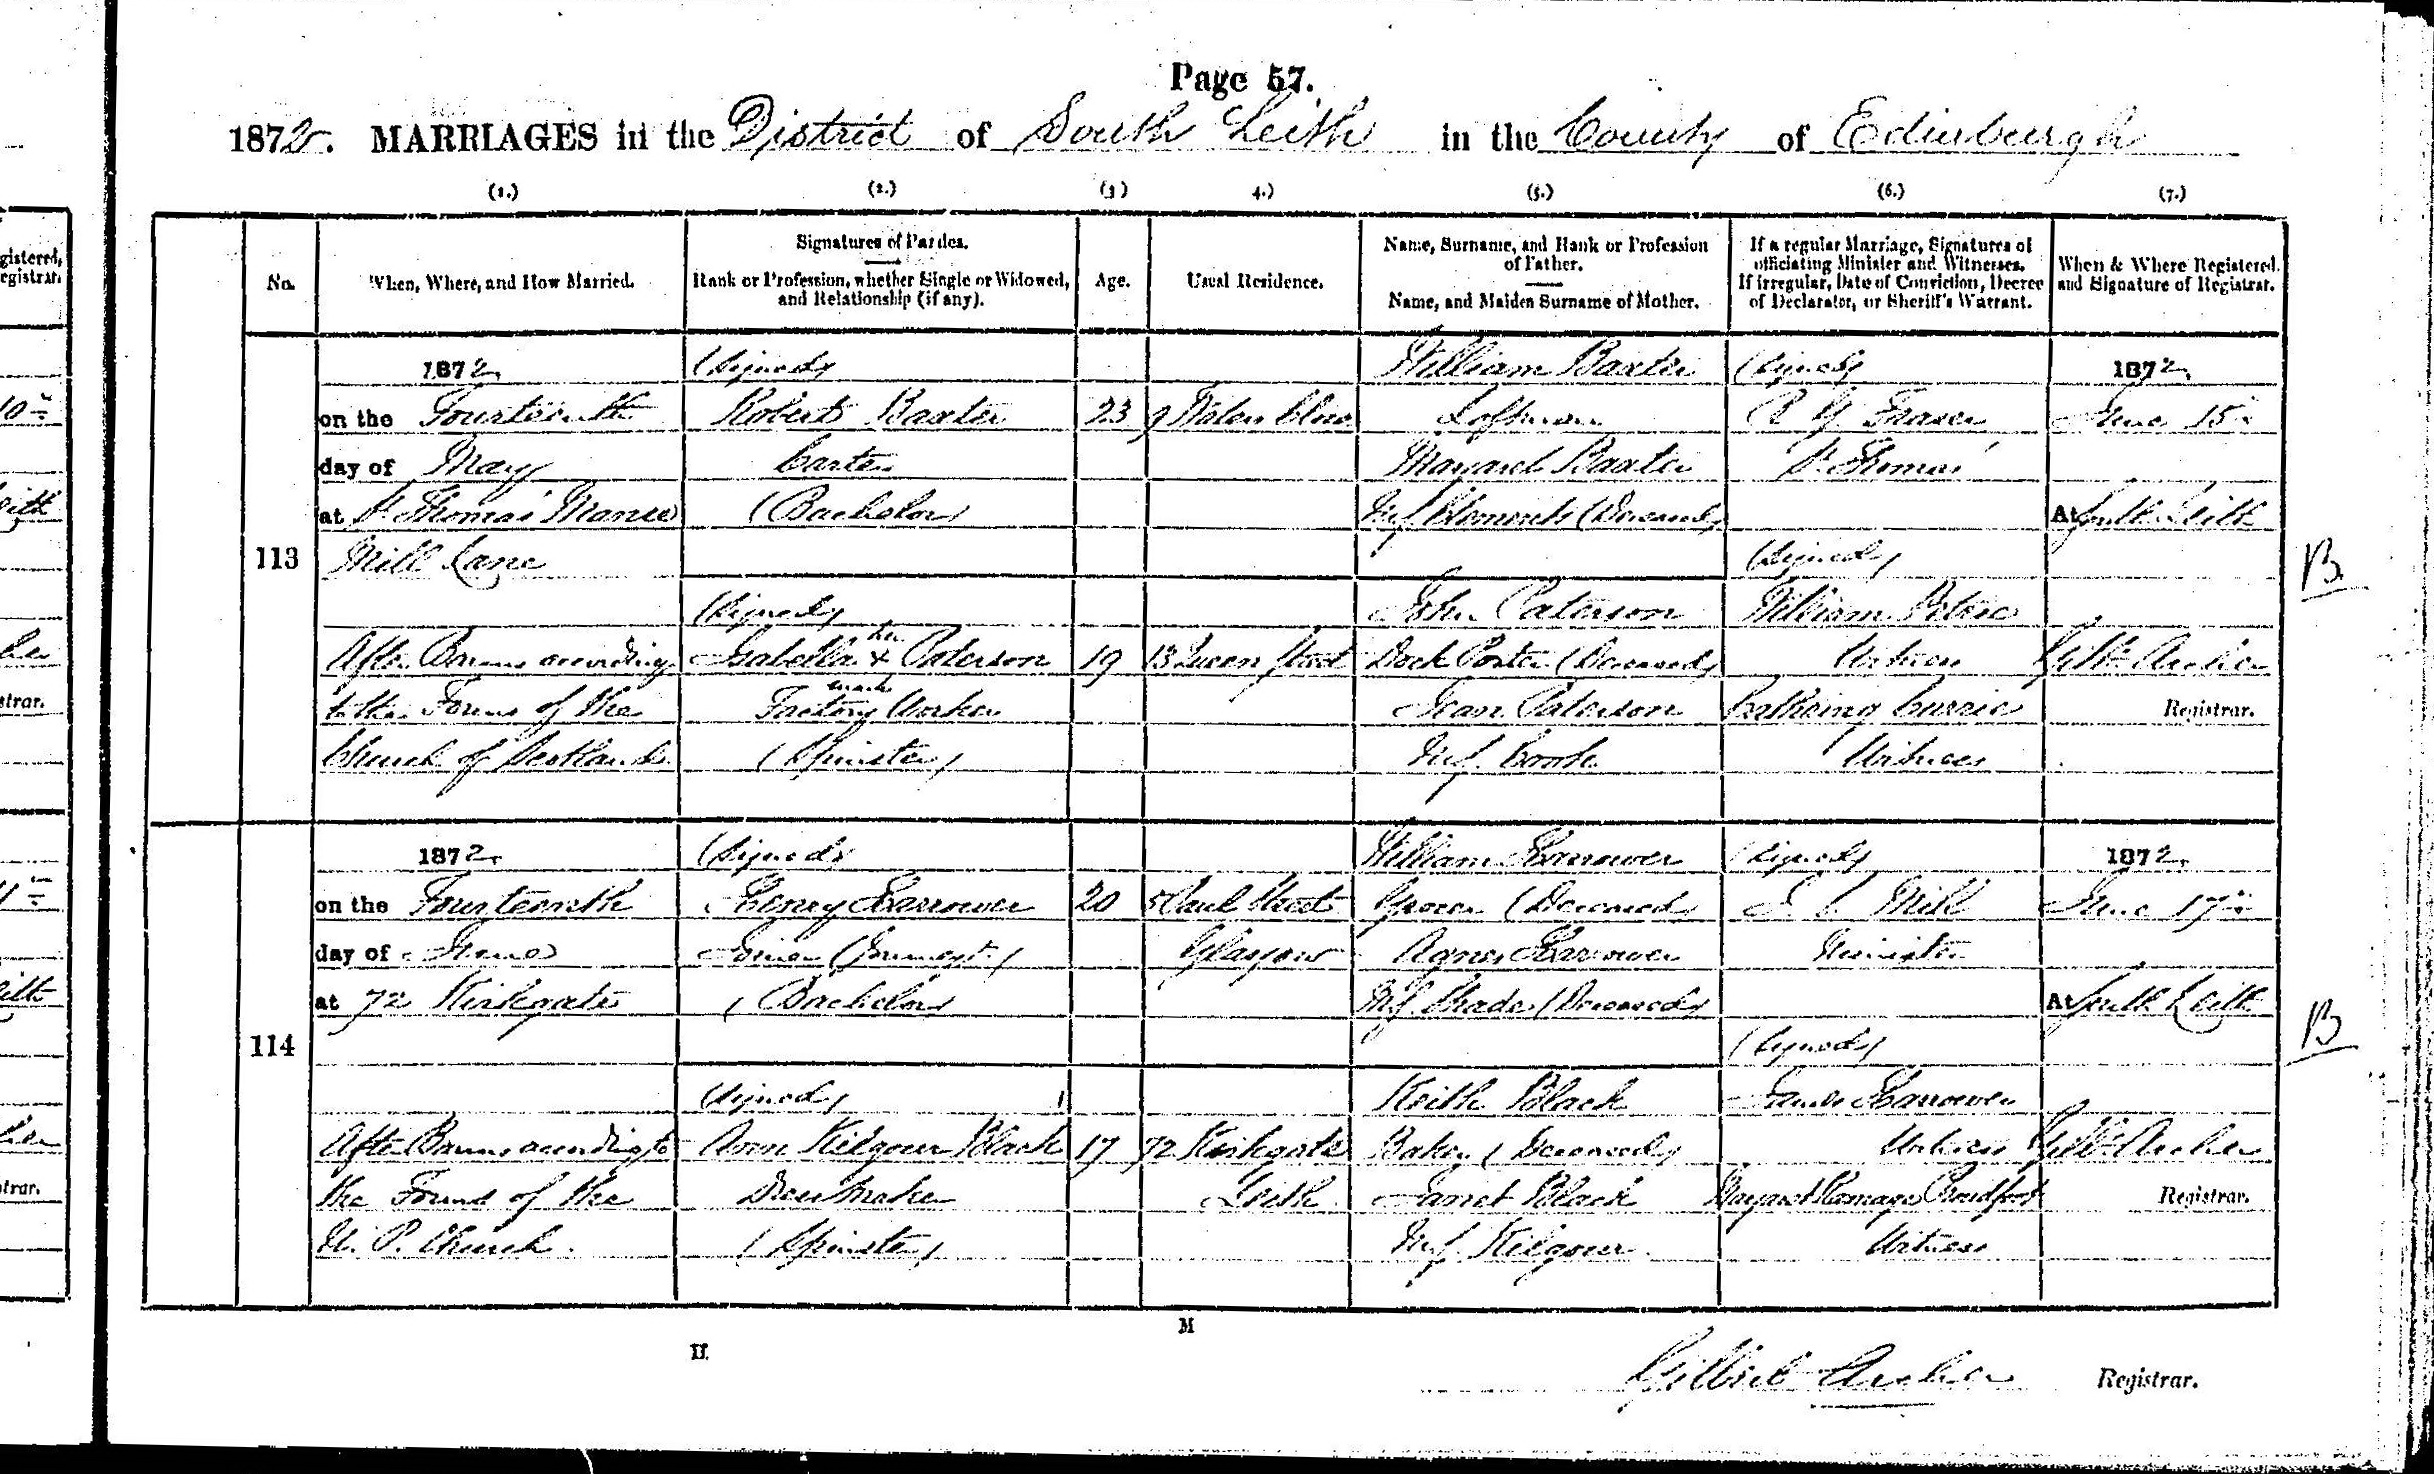 Page 57.
1872. MARRIAGES in the District of South Leith in the County of Edinburgh
(1.) (2.) (3) 4.) (5.) (6.) (7.)
No.
When, Where, and How Married.
Signatures of Parties.
Rank or Profession, whether Single or Widowed,
and Relationship (if any).
Age.
Usual Residence.
Name, Surname, and Rank or Profession
of Father.
Name, and Maiden Surname of Mother.
If a regular Marriage, Signatures of
officiating Minister and Witnesses.
If irregular, Date of Conviction, Decree
of Declarator, or Sheriff's Warrant.
When & Where Registered,
and Signature of Registrar.
113
1872
on the Fourteenth
day of May
at St Thomas' Manse
Mill Lane
After Banns according
to the Forms of the
Church of Scotland
(Signed)
Robert Baxter
Carter
(Bachelor)
(Signed)
her
Isabella x Paterson
mark
Factory Worker
(Spinster)
23
19
9 Water Close
13 Queen Street
William Baxter
Loftman
Margaret Baxter
M.S. Clements (Deceased)
John Paterson
Dock Porter (Deceased)
Jean Paterson
M.S. Cook
(Signed)
R G Fraser
St Thomas'
(Signed)
William Petrie
Witness
Currie
Witness
1872
June 15th
At South Leith
Gilbt Archer
Registrar.
B
114
1872
on the Fourteenth
day of June
at 72 Kirkgate
After Banns according to
the Forms of the
U. P. Church.
(Signed)
Henry Harrower
Joiner (Journeyt.)
(Bachelor)
(Signed)
Ann Kilgour Black
Dressmaker
(Spinster)
20
17
5 Paul Street
Glasgow
72 Kirkgate
Leith
William Harrower
Grocer (Deceased)
Agnes Harrower
M.S. Shade (Deceased)
Keith Black
Baker (Deceased)
Janet Black
M.S. Kilgour
(Signed)
Mill
Minister
(Signed)
James Harrower
Witness
Margaret Ramage Proudfoot
Witness
1872
June 17th
At South Leith
Gilbt Archer
Registrar.
B
M
H
Gilbert Archer Registrar.